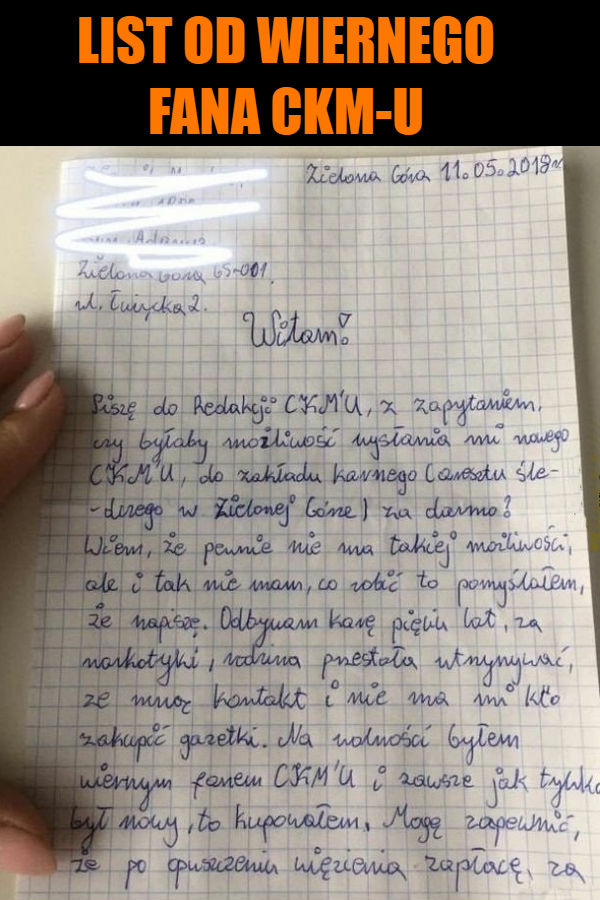 LIST OD WIERNEGO
FANA CKM-U
Zielona Góra 11.05.2018r
Zielona Góra 65-001.
ul. Łużycka 2.
Witam!
Piszę do Redakcji CKM'U, z zapytaniem,
czy byłaby możliwość wysłania mi nowego
CKM'U, do zakładu karnego (aresztu śle-
-dczego w Zielonej Górze) za darmo?
Wiem, że pewnie nie ma takiej możliwości,
ale i tak nie mam, co robić to pomyślałem,
że napiszę. Odbywam karę pięciu lat, za
narkotyki, rodzina przestała utrzymywać,
ze mną kontakt i nie ma mi kto
zakupić gazetki. Na wolności byłem
wiernym fanem CKM'U i zawsze jak tylko
był nowy, to kupowałem. Mogę zapewnić,
że po opuszczeniu więzienia zapłacę, za